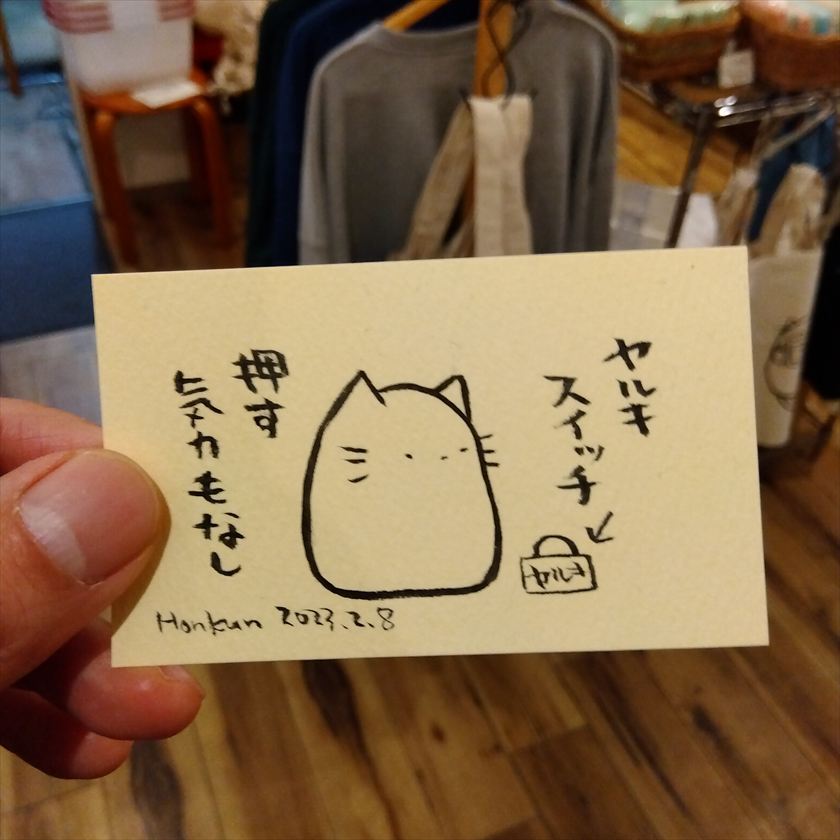 ヤルキ
スイッチ
ヤルキ
押す
気力もなし
Honkun 2023.2.8